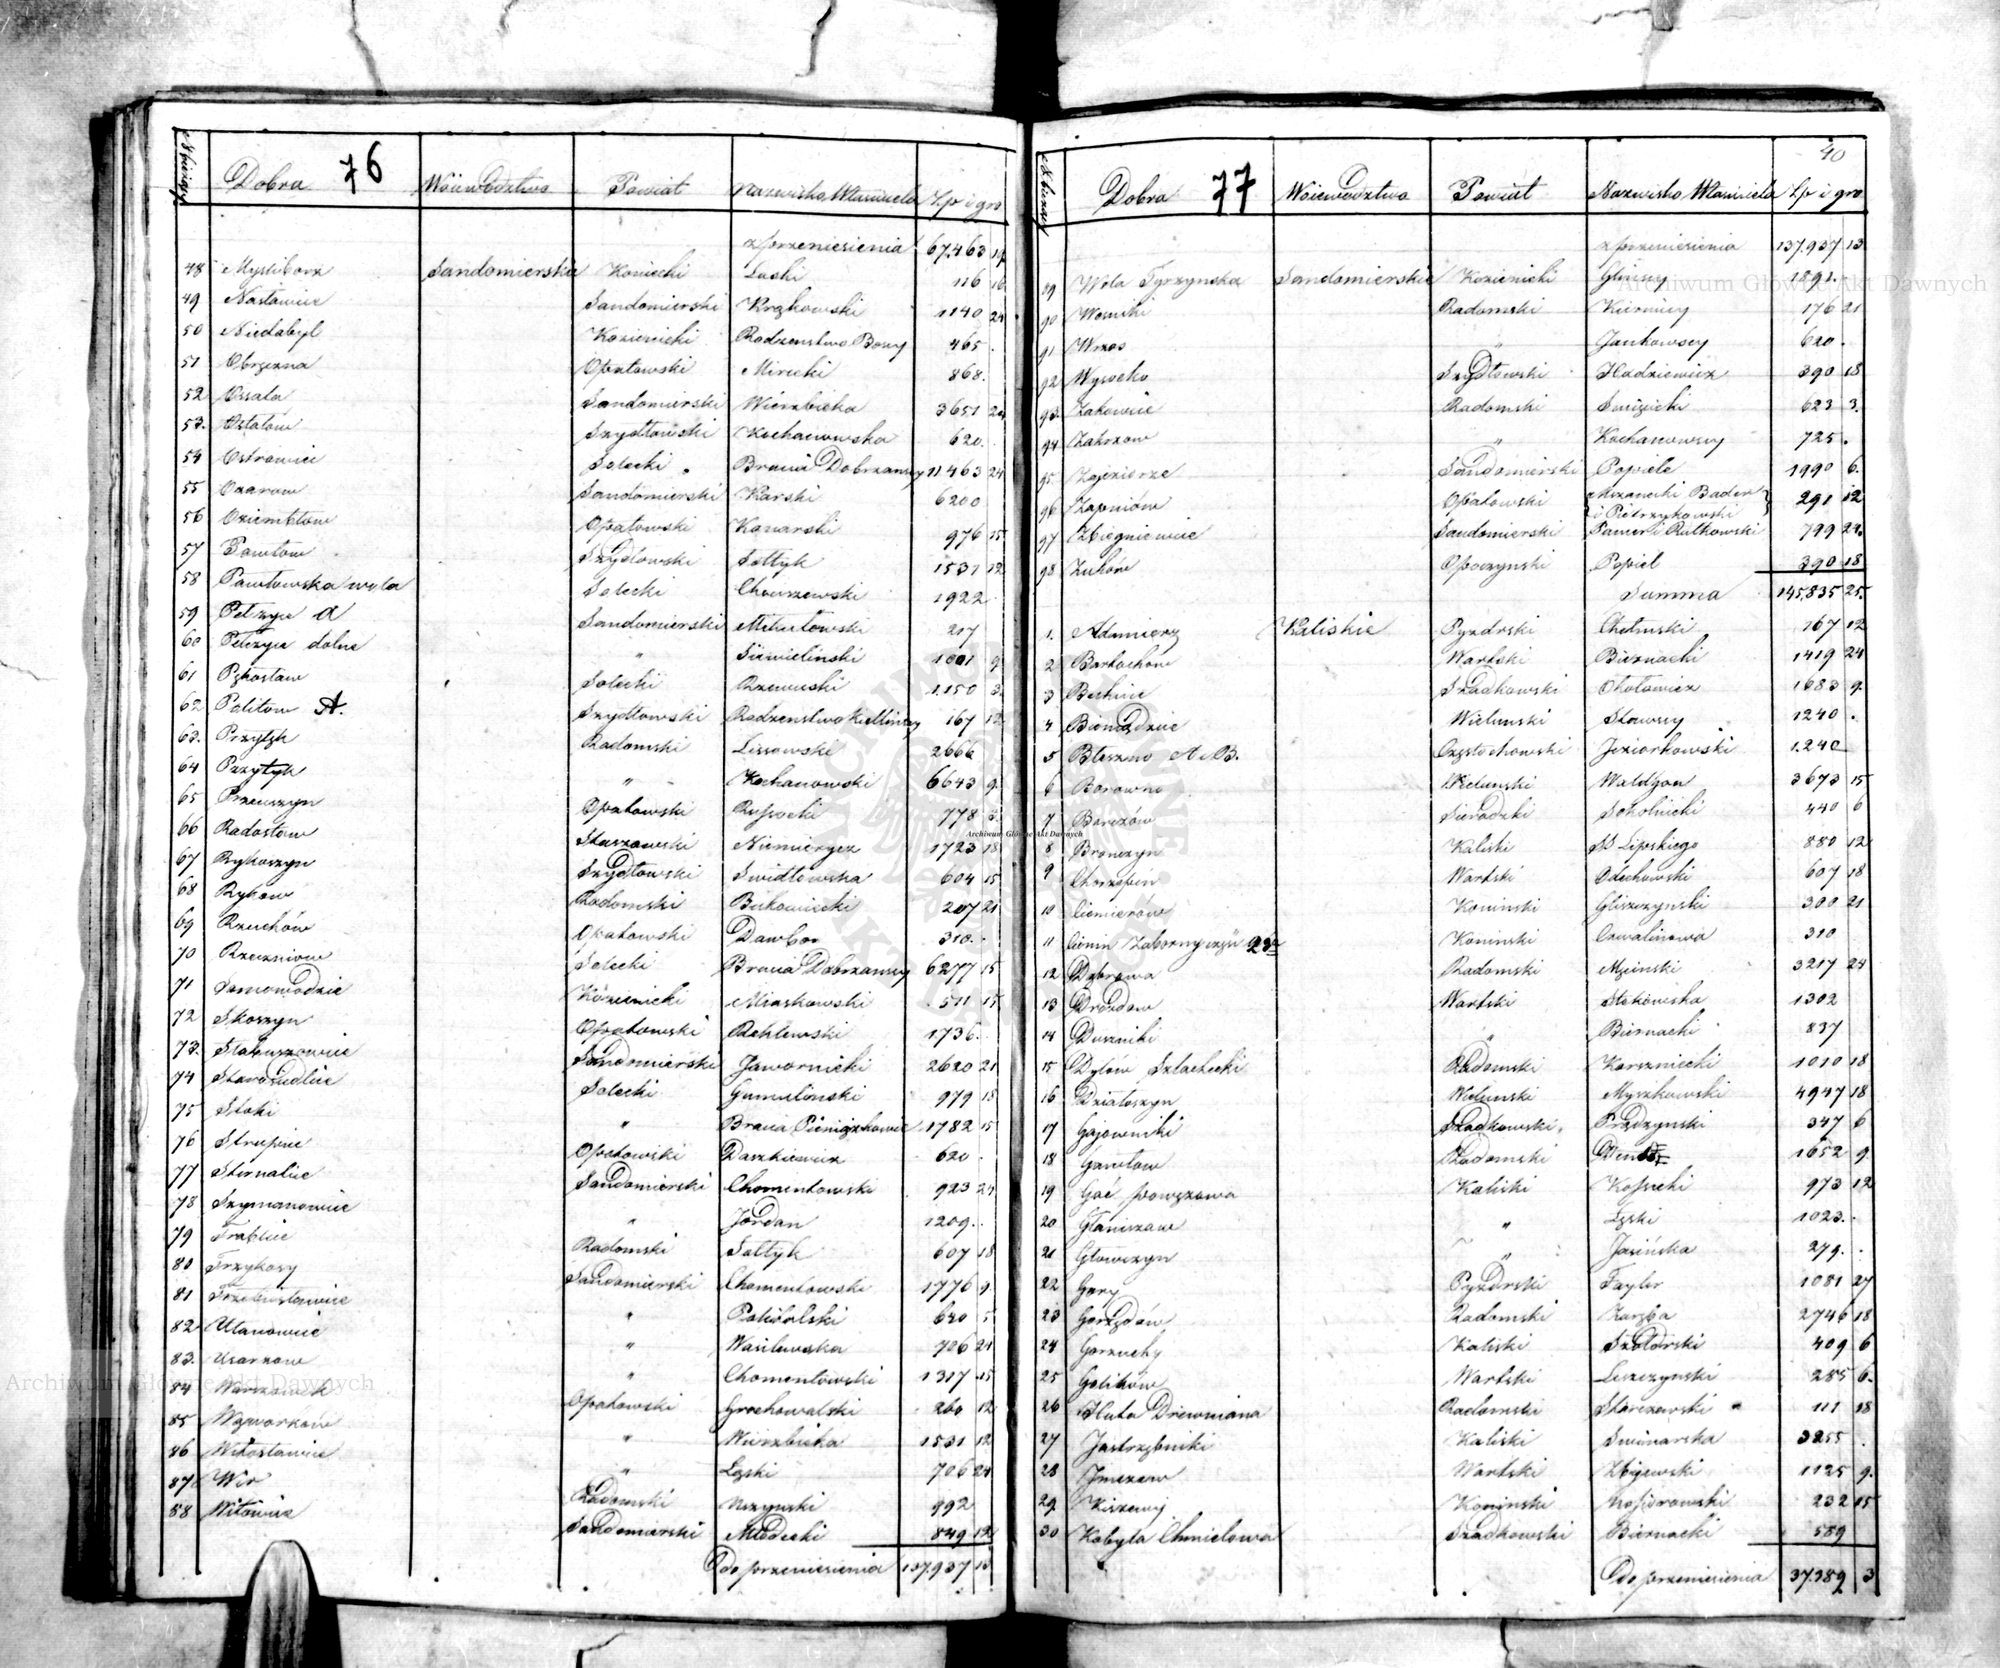 N bieżący Dobra 76 Województwo Powiat Nazwisko Właściciela Złp i gro
z przeniesienia 67,463 19
48 Mysliborz Sandomierskie Koniecki Laski 116 16
49 Nasławice Sandomierski Krąkowski 1140 24
50 Niedabyl Kozienicki Rodzenstwo Boscy 465 .
51 Obrzezna Opatowski Mirecki 868.
52 Ossala Sandomierski Wierzbicka 3651 24
53. Ostałow Szydłowski Kochanowska 620.
54 Ostrowiec Solecki Bracia Dobrzanscy 11463 24
55 Ożarow Sandomierski Karski 6200
56 Oziembłow Opatowski Konarski 976 15
57 Pawłow Szydłowski Sołtyk 1531 12
58 Pawłowska wola Solecki Chwrzewski 1922
59 Pełczyce A Sandomierski Michałowski 217
60 Pełczyce dolne " 1001 9
61 Pękosław Solecki Rzewuski 1150 3
62 Politow A. Szydłowski Rodzenstwo 167 12
63. Przytyk Radomski Lissowski 2666
64 Przytyk " Kochanowski 6643 9
65 Przeuszyn Opatowski Russocki 778 3
66 Radosław Staszowski Niemierycz 1723 18
67 Rykoszyn Szydłowski Swidłowska 604 15
68 Rykow Radomski Bukowiecki 207 21
69 Rzuchów Opatowski Dawbor 310.
70 Rzeczniow Solecki Bracia Dobrzanscy 6277 15
71 Samowodzie Kozienicki Miaskowski 511 15
72 Skoszyn Opatowski Rehlewski 1736.
73. Słabuszowice Sandomierski Jawornicki 2620 21
74 Starosiedlice Solecki Gumulinski 979 18
75 Stoki " Bracia Pieniążkowie 1782 15
76 Strupice Opatowski Daszkiewicz 620 .
77 Sternalice Sandomierski Chomentowski 923 24
78 Szymanowice " Jordan 1209.
79 Trablice Radomski Sołtyk 607 18
80 Trzykosy Sandomierski Chomentowski 1776 9
81 Trzebiesławice " 620 5
82 Ułanowice " Wasilewska 706 24
83. Usarzow " Chomentowski 1317 15
84 Warszowek Opatowski Grochowalski 260 12
85 Wąworkow " Wierzbicka 1531 12
86 Witosławice " Łęski 706 24
87 Wir Radomski 992
88 Witowice Sandomierski Młodecki 849 12
Do przeniesienia 137,937 13
40
N bieżący Dobra 77 Województwo Powiat Nazwisko Właściciela Złp i gro
z przeniesienia 137,937 13
89 Wola Tyrzynska Sandomierskie Kozienicki 1891.
90 Wosniki Radomski 176 21
91 Wrzos " Jankowscy 620 .
92 Wysocko Szydłowski Hadziewicz 390 18
93. Zakowice Radomski 623 3.
94 Zakrzow " Kochanowscy 725 .
95 Zajezierze Sandomierski Popiele 1990 6.
96 Zapniów Opatowski Mszanecki Baden i Pietrzykowski 291 12
97 Zbigniewice Sandomierski Rutkowski 799 24.
98 Zuków Opoczynski Popiel 390 18
Summa 145,835 25.
1. Adamierz Kaliskie Pyzdrski Chełmski 167 12
2 Bartochów Wartski Biernacki 1419 24
3 Bechcice Szadkowski Okołowicz 1683 9.
4 Bieniądzice Wielunski Stawscy 1240 .
5 Błeszno A i B. Częstochowski Jeziorkowski 1240
6 Borowno Wielunski 3673 15
7 Borczów Sieradzki Sokolnicki 440 6
8 Bronczyn Kaliski SS Lipskiego 880 12
9 Chorzepin Wartski Odechowski 607 18
10 Ciemierów Koninski Gliszczynski 300 21
11 Cienin Zaborny część 2ga Koninski 310
12 Dąbrowa Radomski Męcinski 3217 24
13 Drozdow Wartski 1302
14 Duszniki " Biernacki 837
15 Dylów Szlachecki Radomski Karsznicki 1010 18
16 Działoszyn Wielunski Myszkowski 4947 18
17 Gajowniki Szadkowski Prądzynski 347 6
18 Gawłow Radomski 1652 9.
19 Gać powązowa Kaliski Kossecki 973 12
20 Glaniszaw " Łęski 1023.
21 Głowczyn " Jasińska 279.
22 Gory Pyzdrski Taylor 1081 27
23 Gorzędów Radomski Zaręba 2746 18
24 Gorzuchy Kaliski 409 6
25 Golików Wartski Leszczynski 285 6.
26 Huta Drewniana Radomski Starczewski 111 18
27 Jastrzębniki Kaliski Swinarska 3255 .
28 Jmczew Wartski Zbijewski 1125 9.
29 Kiszewy Koninski 232 15
30 Kobyla Chmielowa Szadkowski Biernacki 589
Do przeniesienia 37,389 3
Archiwum Główne Akt Dawnych
Archiwum Główne Akt Dawnych
Archiwum Główne Akt Dawnych